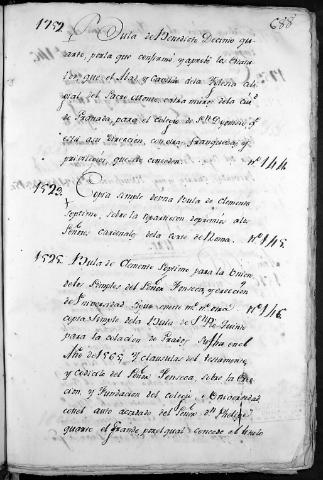 688
1752. Bula de Benedicto Decimo qu
arto, por la que confirmó y aprobó la
que el Abad y Cavildo de la Yglesia cole
gial del Sacro Monte extra muros de la Ciu.d
de Granada, para el colegio de S.n Dyonisio q.e
está a su direccion, con otras franquezas, y
privilegios, que le conceden. nº 144
1523. Copia simple de una Bula de Clemente
Septimo, sobre la reparticion de premio a los
Señores Cardenales de la corte de Roma. nº 145
1525. Bula de Clemente Septimo, para la Union
de los Simples del Señor Fonseca, y ereccion
de Universidad. nº 146
copia simple de la Bula de S.n Pio Quinto
para la colacion de Grados su fha en el
Año de 1565, y clausulas del testamento
y codicilo del Señor Fonseca, sobre la
cion, y Fundacion del colegio, y Universidad,
con el auto acordado del Señor D.n Phelipe
quarto el Grande, por el qual concede el titulo